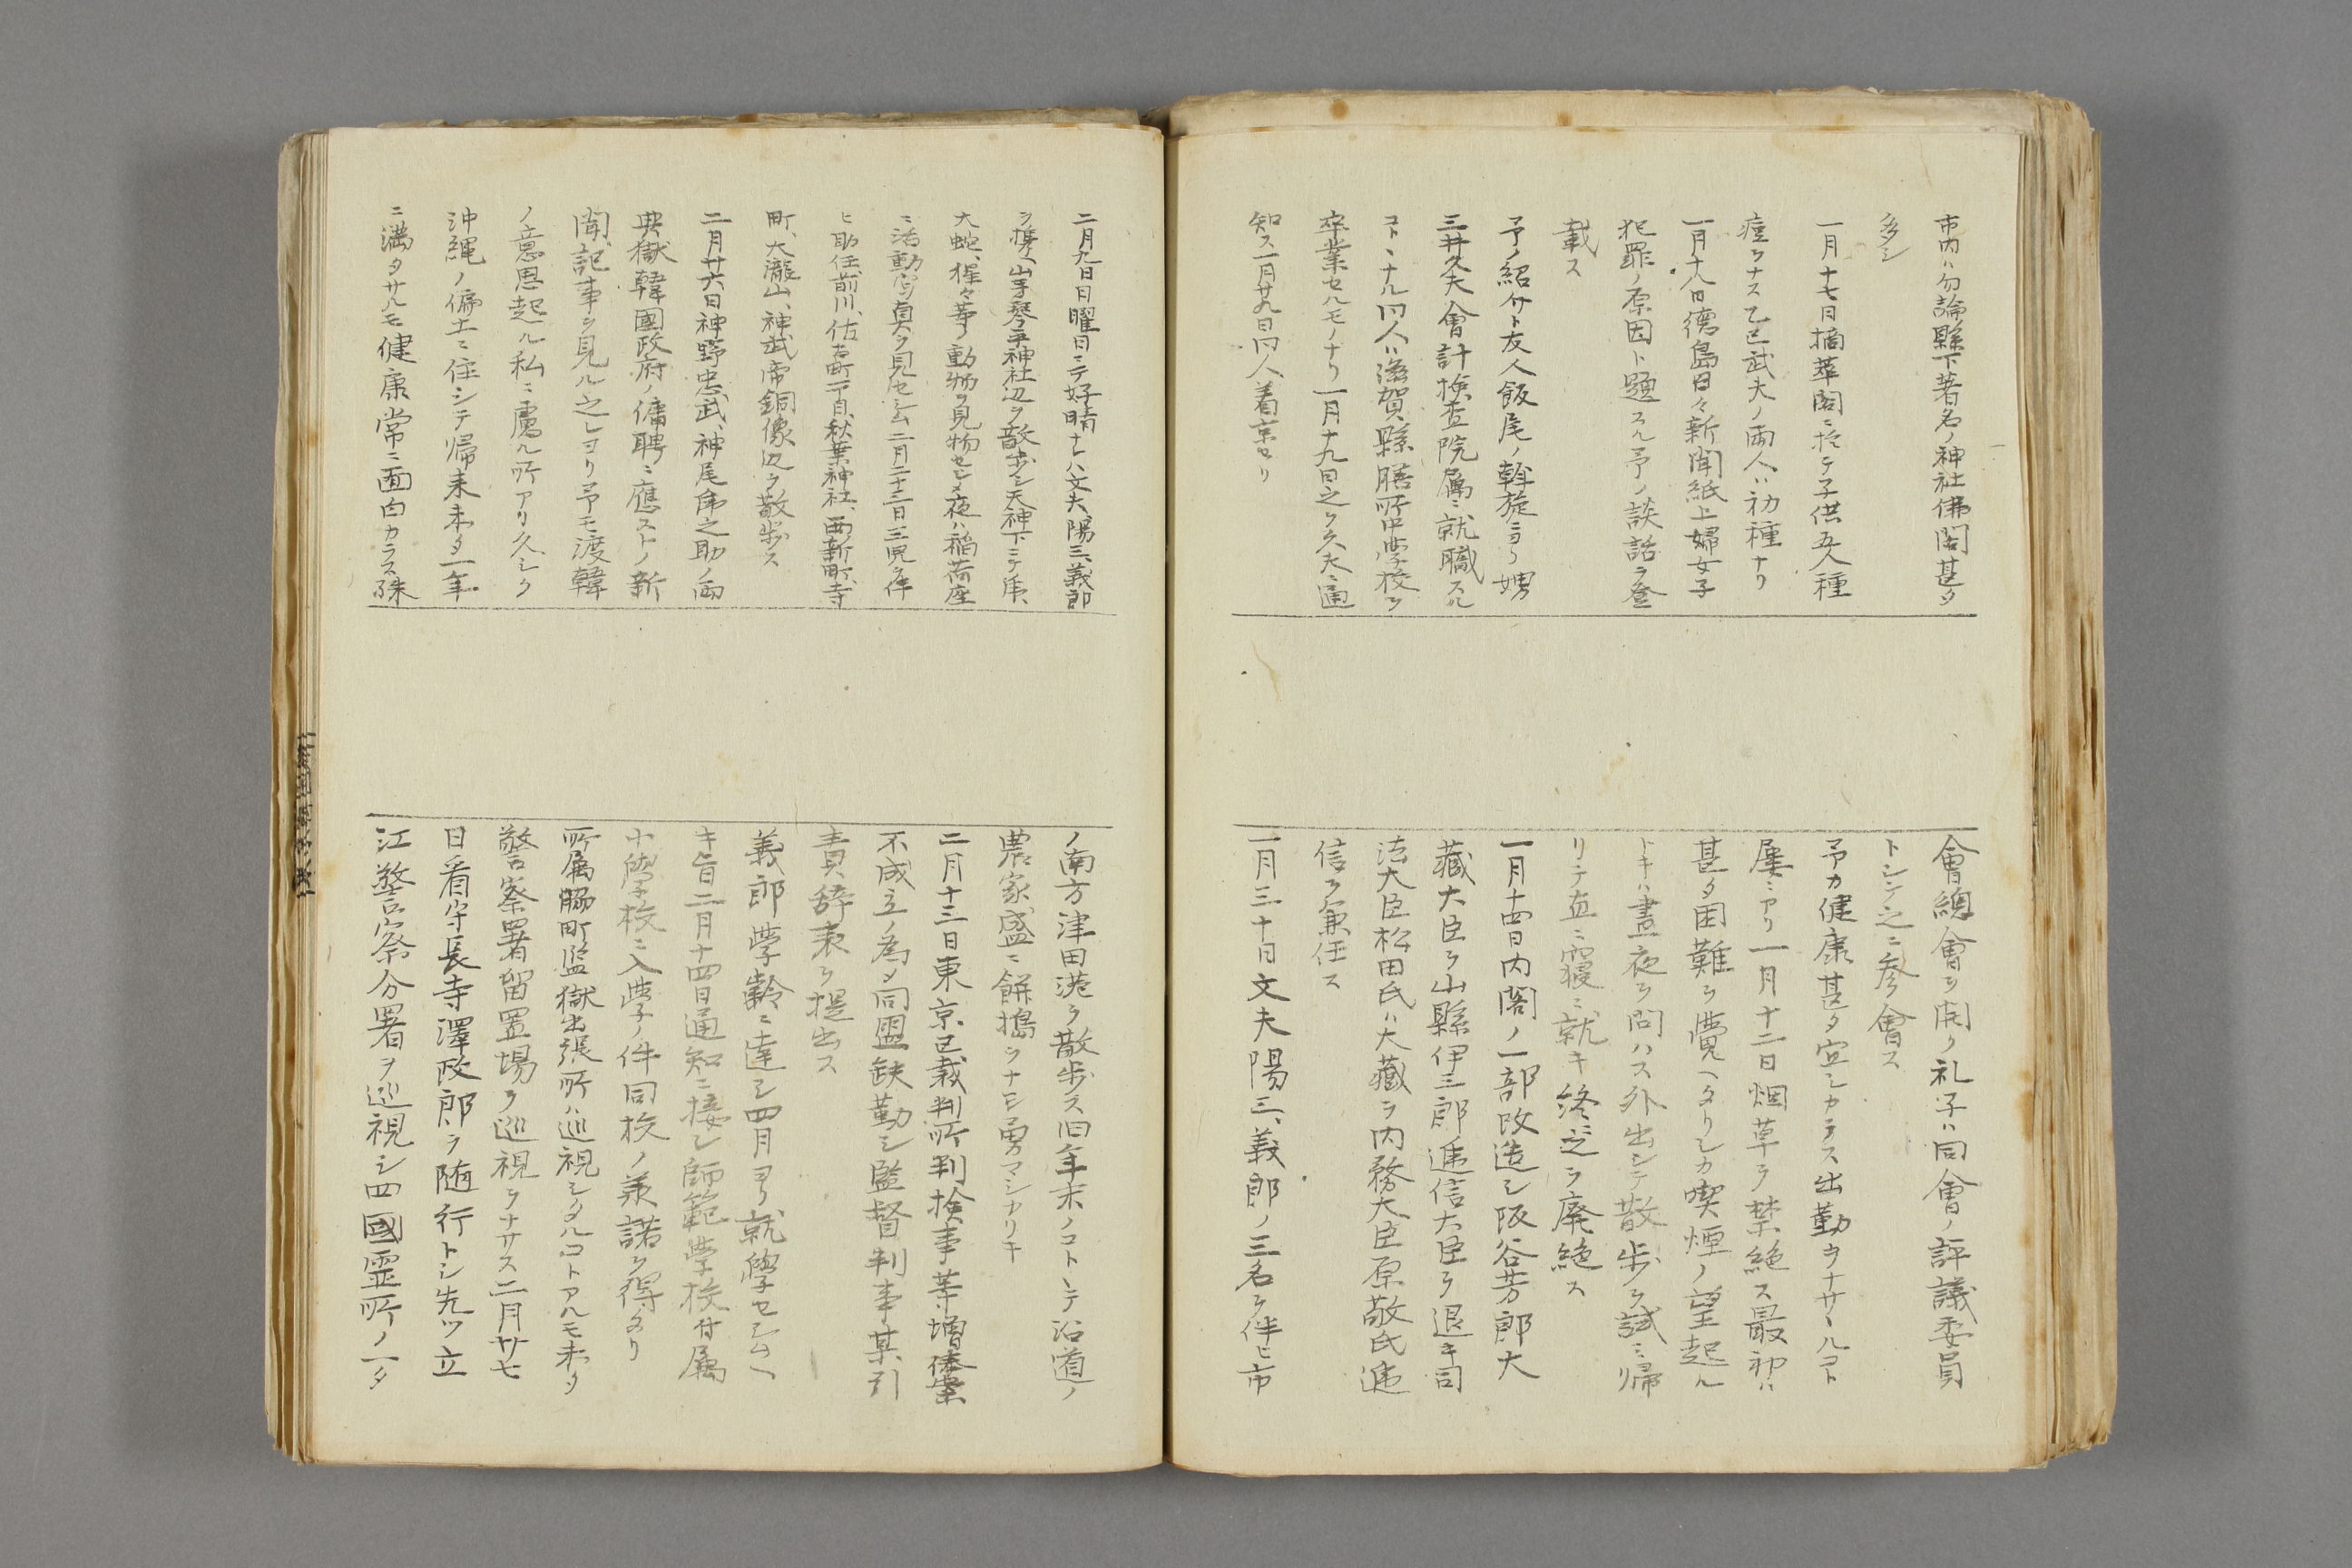 市内ハ勿論縣下著名ノ神社佛閣甚タ
多シ
一月十七日摘翠閣ニ於テ子供五人種
痘ヲナス乙己武夫ノ両人ハ初種ナリ
一月十八日德島日々新聞紙上婦女子
犯罪ノ原因ト題スル予ノ談話ヲ登
載ス
予ノ紹介ト友人飯尾ノ斡旋ニヨリ甥
三井久夫會計検査院属ニ就職スル
コトヽナル同人ハ滋賀縣膳所中學校ヲ
卒業セルモノナリ一月十九日之ヲ久夫ニ通
知ス一月廿九日同人着京セリ
會總會ヲ開ク礼子ハ同會ノ評議委員
トシテ之ニ參會ス
予カ健康甚タ宜シカラス出勤ヲナサヽルコト
屡々アリ一月十二日烟草ヲ禁絶ス最初ハ
甚タ困難ヲ覺ヘタリシカ喫煙ノ望起ル
トキハ晝夜ヲ問ハス外出シテ散歩ヲ試ミ帰
リテ直ニ寝ニ就キ終ニ之ヲ廃絶ス
一月十四日内閣ノ一部改造シ阪谷芳郎大
藏大臣ヲ山縣伊三郎逓信大臣ヲ退キ司
法大臣松田氏ハ大藏ヲ内務大臣原敬氏逓
信ヲ兼任ス
一月三十日文夫陽三、義郎ノ三名ヲ伴ヒ市
二月九日日曜日ニテ好晴ナレハ文夫陽三義郎
ヲ携ヘ山手琴平神社辺ヲ散歩シ天神下ニテ虎、
大蛇、猩々等ノ動物ヲ見物セシメ夜ハ稲荷座
ニ活動寫真ヲ見セシム二月二十三日三児ヲ伴
ヒ助任、前川、佐古町一丁目、秋葉神社、西新町、寺
町、大瀧山、神武帝銅像辺ヲ散歩ス
二月廿六日神野忠武、神尾虎之助ノ両
典獄韓國政府ノ傭聘ニ應ストノ新
聞記事ヲ見ル之レヨリ予モ渡韓
ノ意思起ル私ニ慮ル所アリ久シク
沖縄ノ偏土ニ住シテ帰来未タ一年
ニ満タサルモ健康常ニ面白カラス殊
ノ南方津田港ヲ散歩ス旧年末ノコトヽテ沿道ノ
農家盛ニ餅搗ヲナシ勇マシカリキ
二月十三日東京区裁判所判検事等増俸案
不成立ノ為メ同盟缺勤シ監督判事某引
責辞表ヲ提出ス
義郎學齢ニ達シ四月ヨリ就學セシム可
キ旨二月十四日通知ニ接シ師範學校付属
小學校ニ入學ノ件同校ノ承諾ヲ得タリ
所属脇町監獄出張所ハ巡視シタルコトアルモ未タ
警察署留置場ヲ巡視ヲナサス二月廿七
日看守長寺澤政郎ヲ随行トシ先ツ立
江警察分署ヲ巡視シ四國霊所ノ一タ